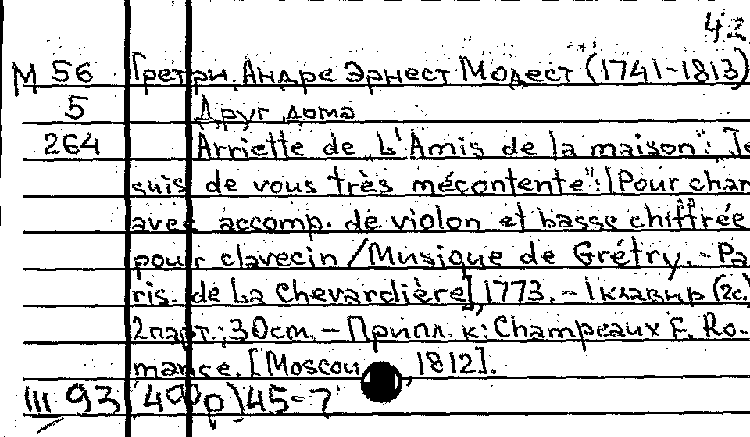 42
М 56 Гретри, Андре Эрнест Модест (1741-1813)
5 Друг дома
264 Arriette de "L'Amis de la maison": "Je
suis de vous très mécontente": [Pour chan
avec accomp. de violon et basse chiffrée
pour clavecin / Musique de Grétry. - Pa
ris. de La Chevardière], 1773. - 1 клавир (2с.)
2 парт.; 30cm. - Прилл. к: Champeaux F. Ro-
mance. [Moscou, 1812].
III 93 45-7